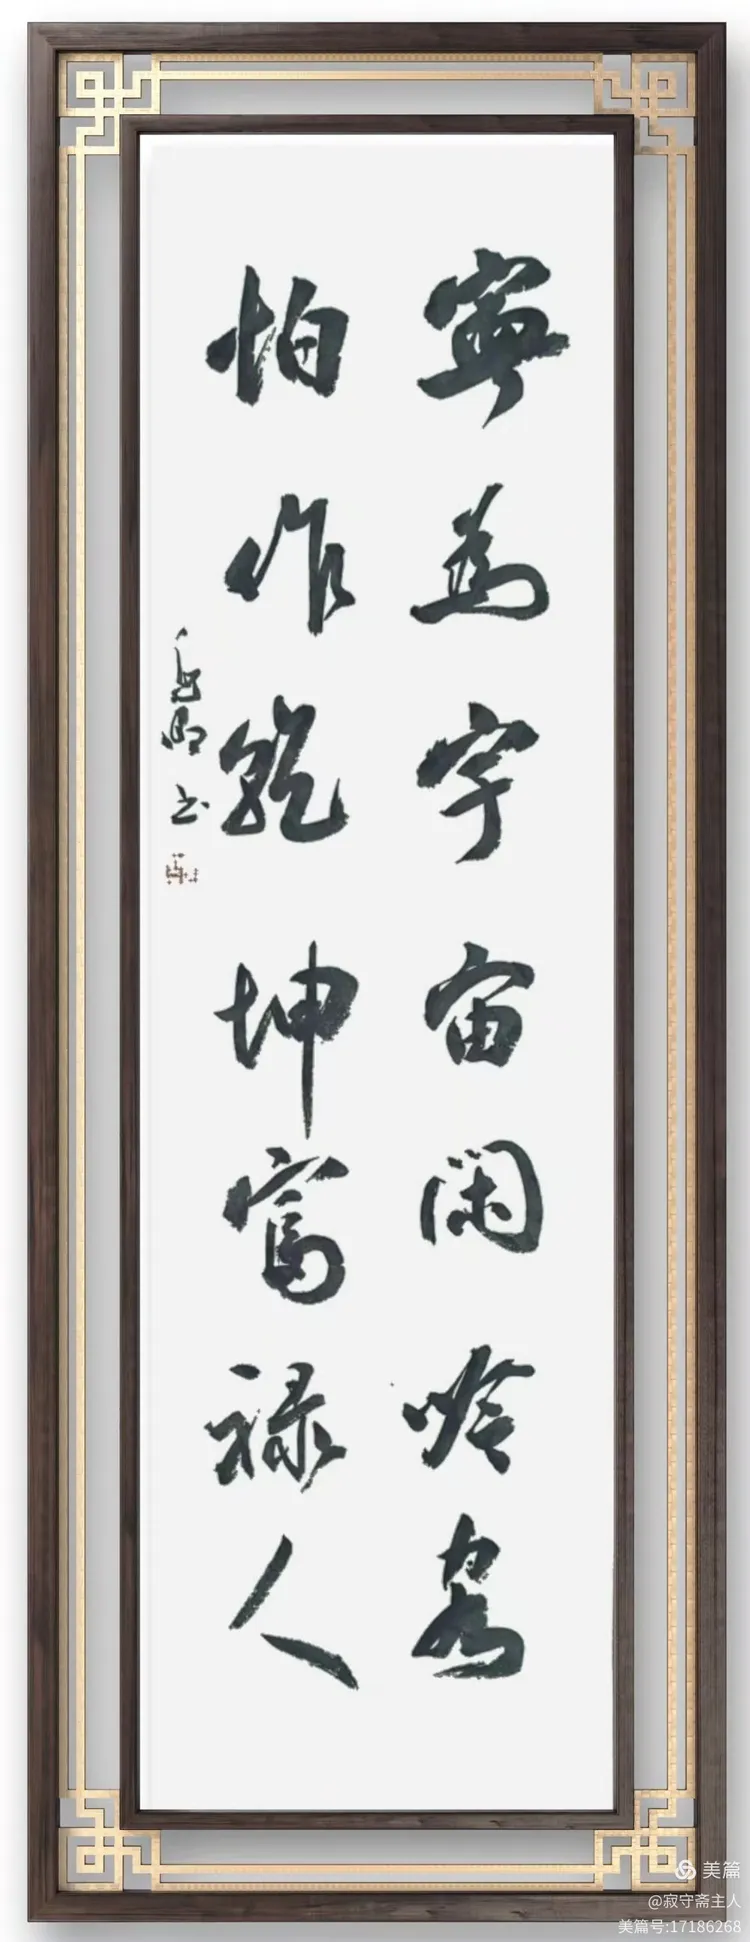 寧為宇宙閑吟客
怕作乾坤竊禄人
书
美篇
@寂守斋主人
美篇号:17186268